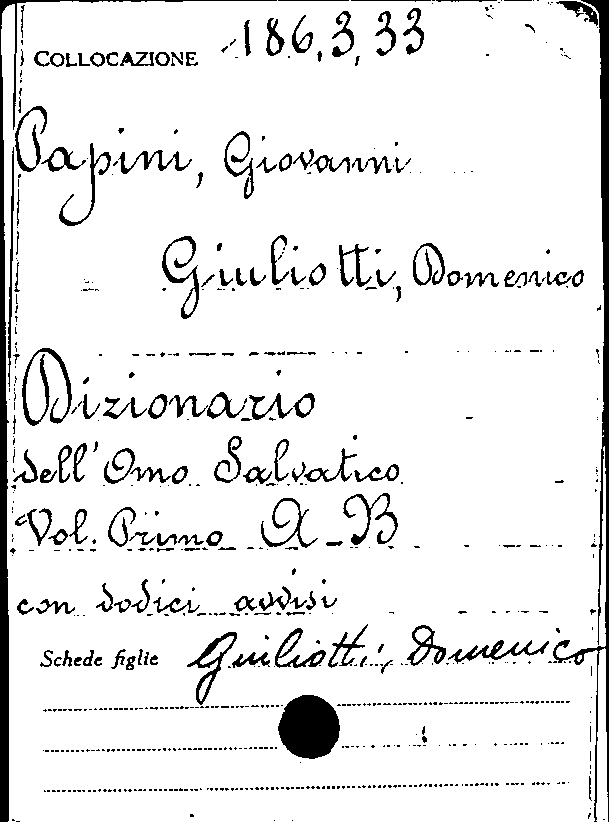 COLLOCAZIONE 186,3,33
Papini, Giovanni
Giuliotti, Domenico
Dizionario
dell'Omo Salvatico
Vol. Primo A-B
con dodici avvisi
Schede figlie Giuliotti, Domenico